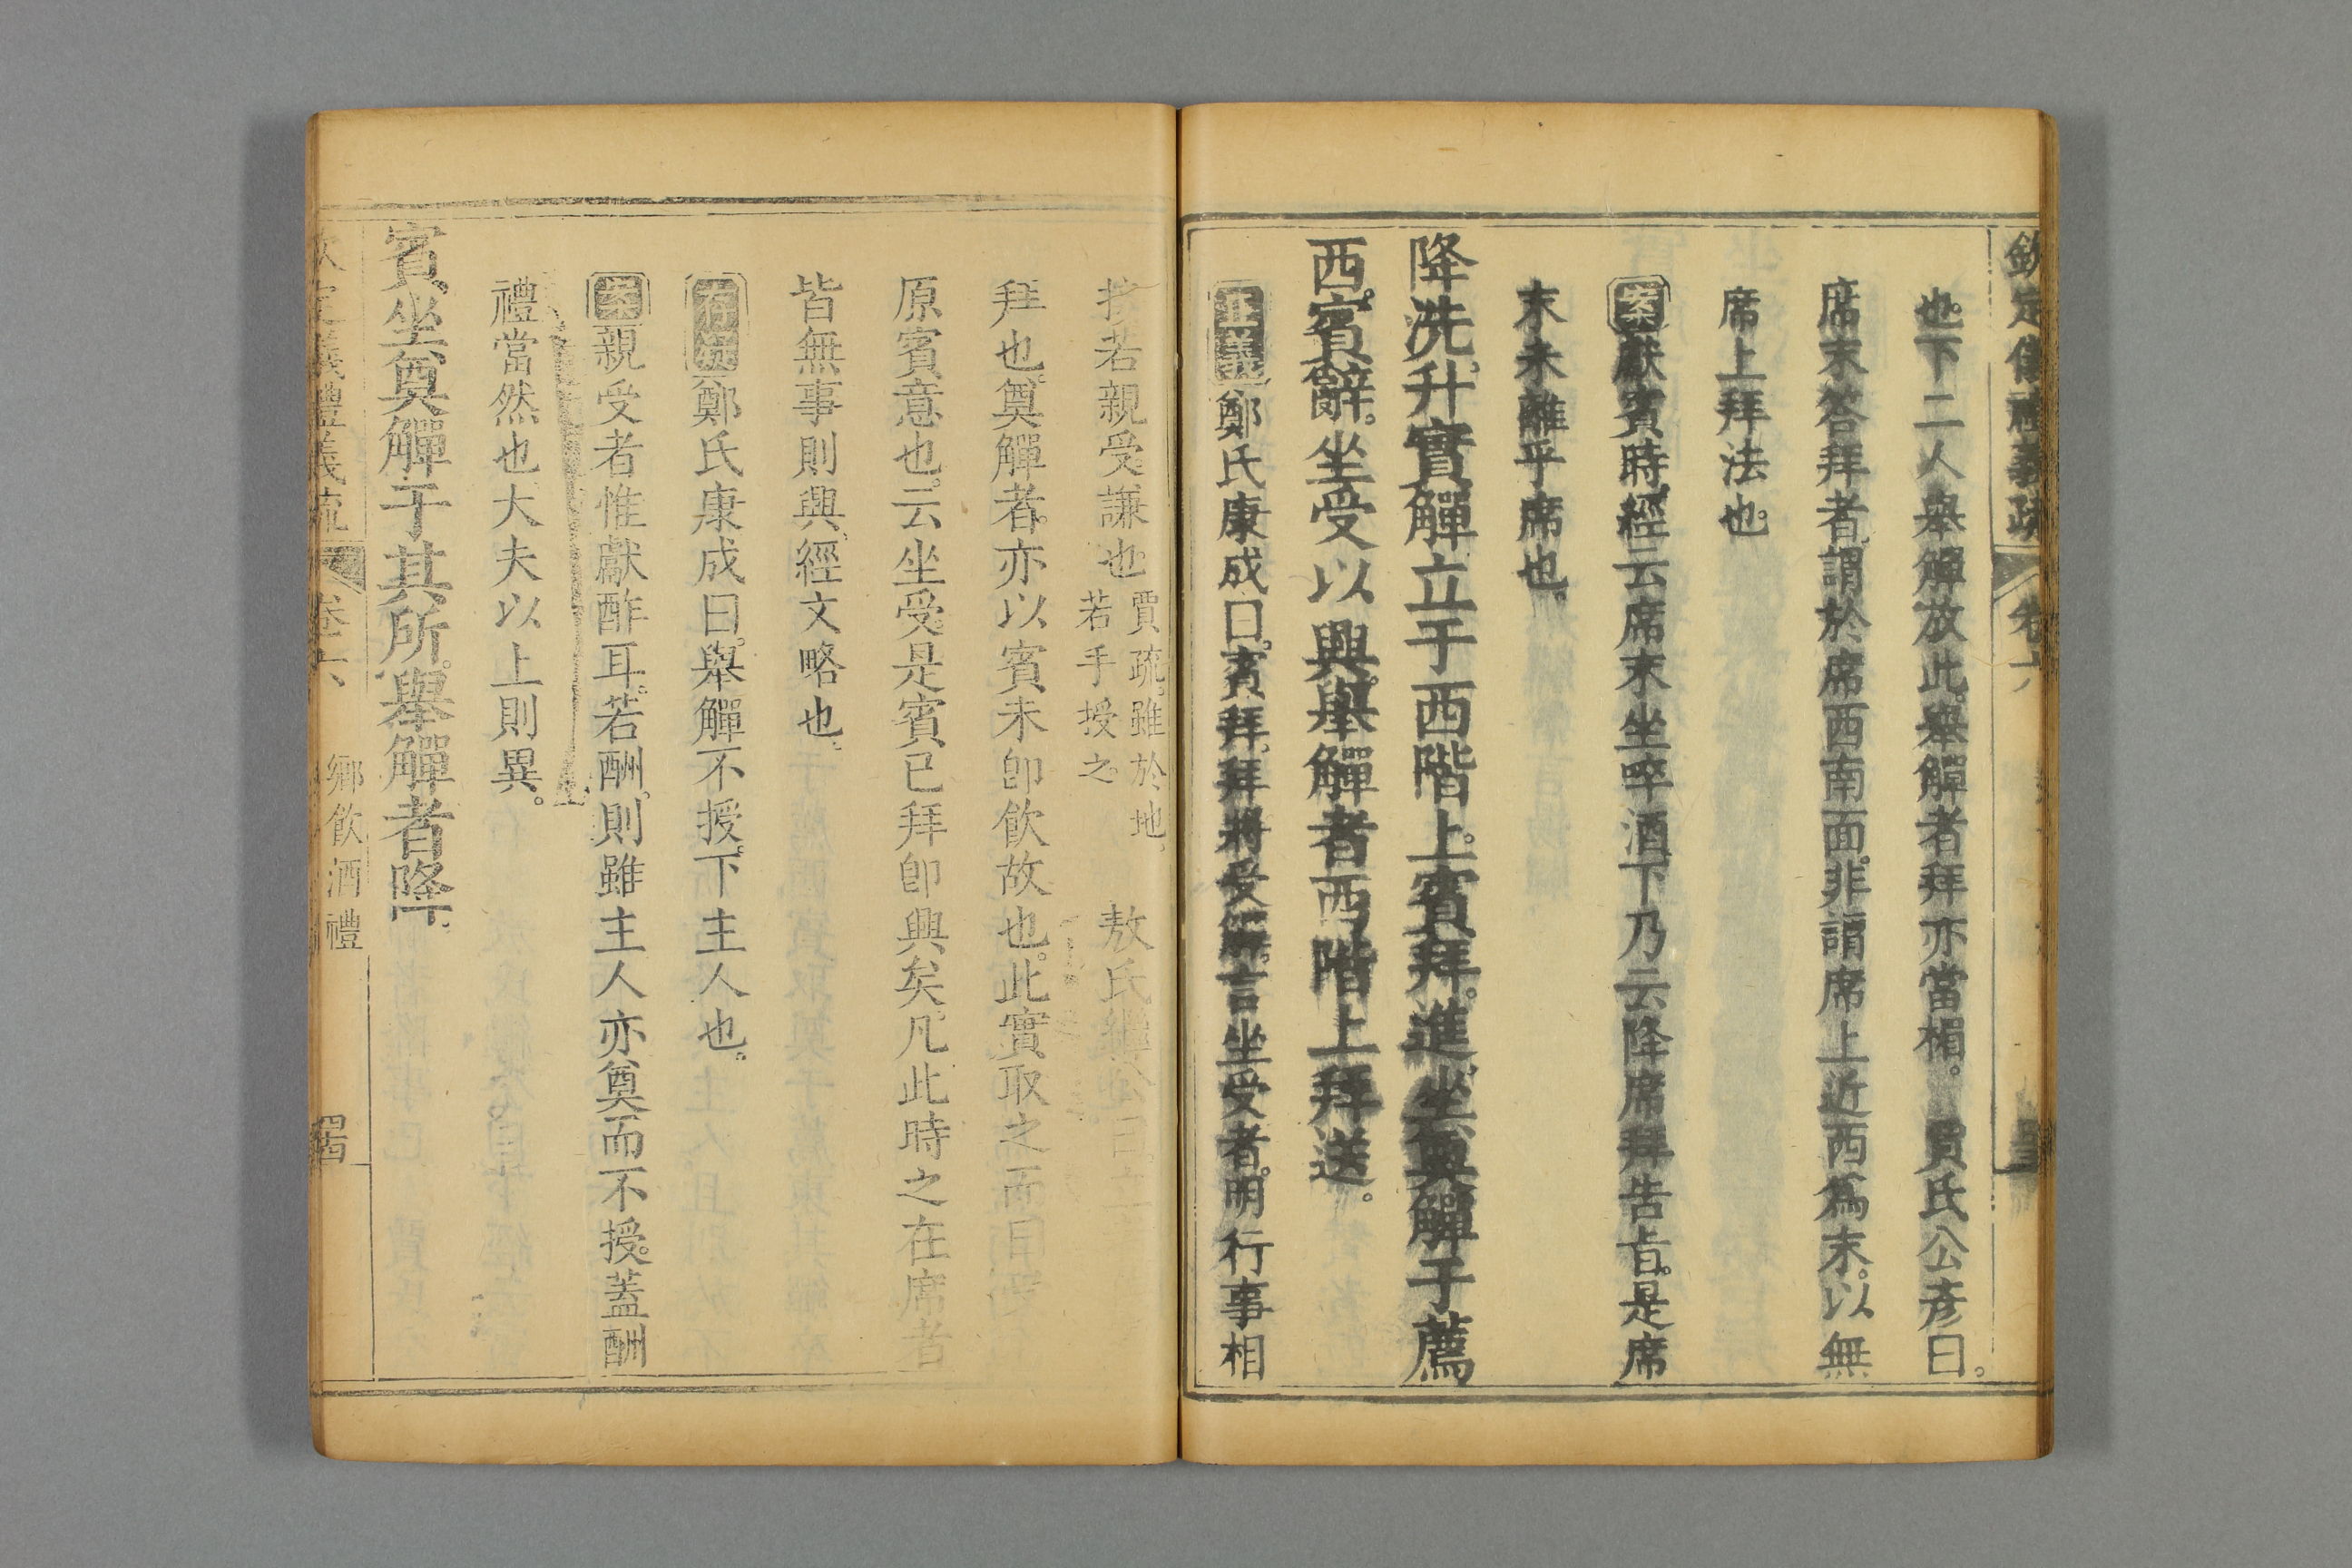 欽定儀禮義疏 卷六
也。下二人舉觶放此。舉觶者拜亦當楣。 賈氏公彥曰。
席末答拜者、謂於席西南面。非謂席上近西爲末。以無
席上拜法也。
案獻賓時、經云席末坐啐酒、下乃云降席拜告旨。是席
末未離乎席也。
降洗、升實觶、立于西階上。賓拜。進、坐奠觶于薦
西。賓辭。坐受以興。舉觶者西階上拜送。
正義鄭氏康成曰。賓拜、拜將受觶。言坐受者。明行事相
接若親受。謙也。賈疏。雖於地、若手授之。 敖氏繼公曰
拜也。奠觶者。亦以賓未卽飲故也。此實取之而曰受
原賓意也。云坐受。是賓已拜卽興矣。凡此時之在席者
皆無事則興、經文略也。
存疑鄭氏康成曰。舉觶不授。下主人也。
案親受者惟獻酢耳。若酬。則雖主人亦奠而不授。蓋酬
禮當然也大夫以上則異。
賓坐奠觶于其所。舉觶者降。
欽定義禮義疏 卷六 鄉飲酒禮 四